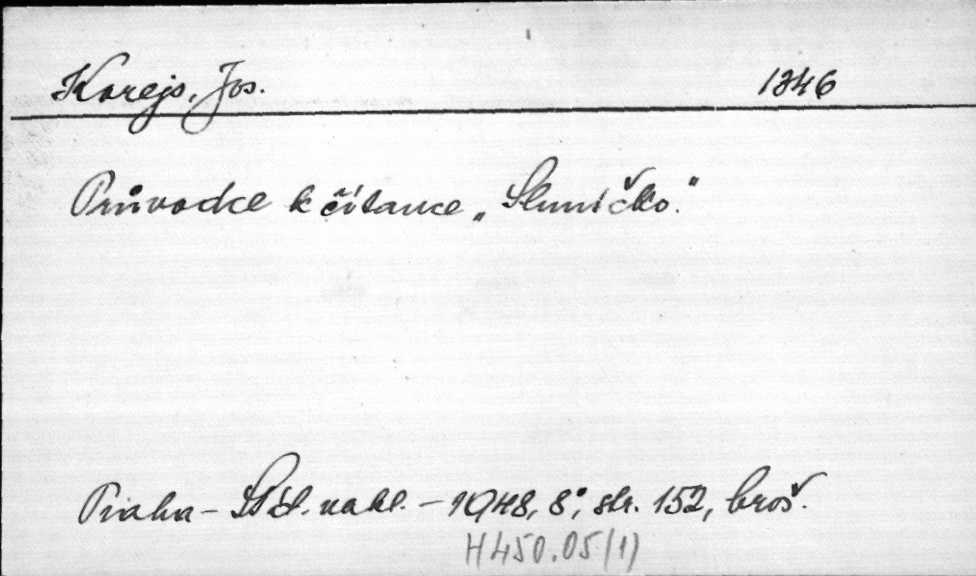 Korejs, Jos. 1346
Průvodce k čítance „Sluníčko.“
Praha – Stát. nakl. – 1948, 8°, str. 152, brož.
H 450.05/1)